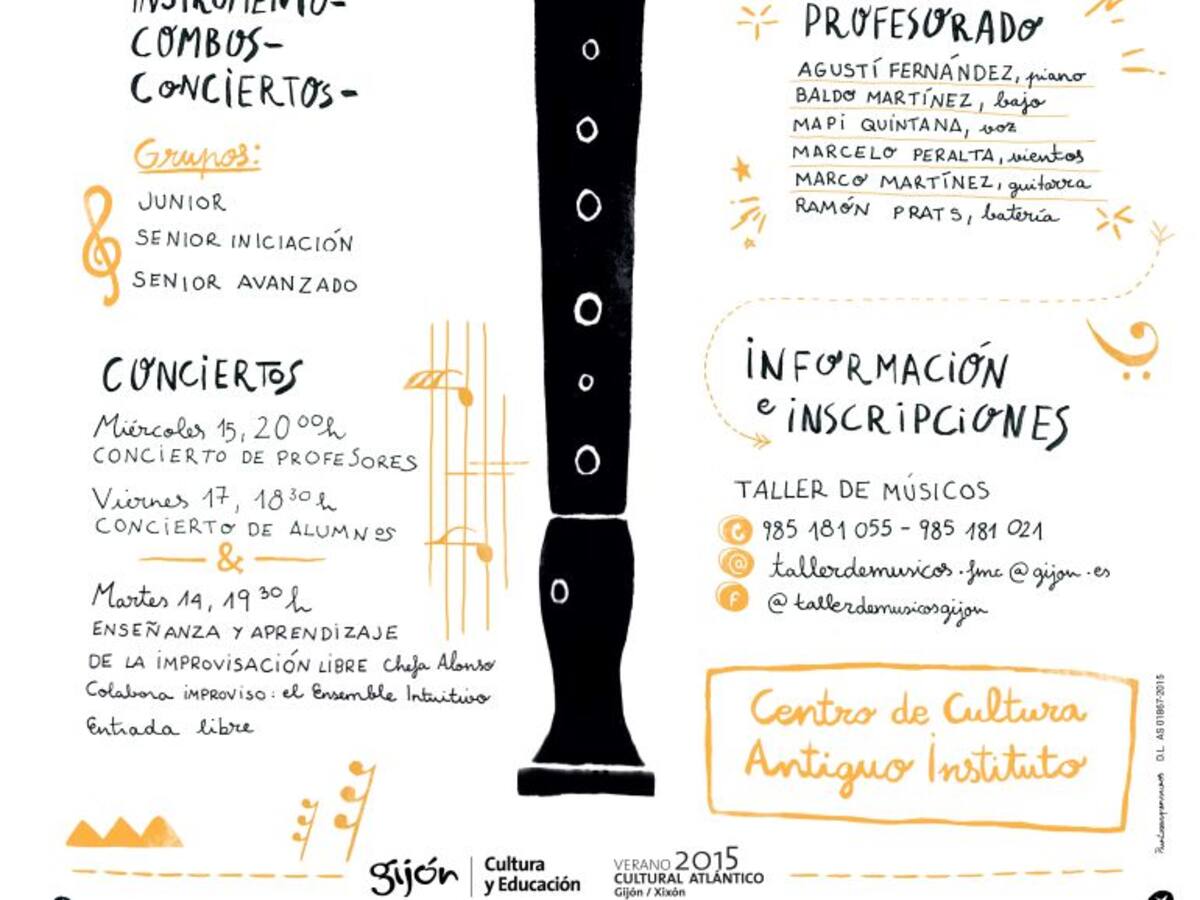 INSTRUMENTO-
COMBOS-
CONCIERTOS-
Grupos:
JUNIOR
SENIOR INICIACIÓN
SENIOR AVANZADO
CONCIERTOS
Miércoles 15, 20 00h
CONCIERTO DE PROFESORES
Viernes 17, 18 30 h
CONCIERTO DE ALUMNOS
&
Martes 14, 19 30 h
ENSEÑANZA Y APRENDIZAJE
DE LA IMPROVISACIÓN LIBRE Chefa Alonso
Colabora IMPROVISO: el Ensemble Intuitivo
Entrada libre
PROFESORADO
AGUSTÍ FERNÁNDEZ, piano
BALDO MARTÍNEZ, bajo
MAPI QUINTANA, voz
MARCELO PERALTA, vientos
MARCO MARTÍNEZ, guitarra
RAMÓN PRATS, batería
INFORMACIÓN
e INSCRIPCIONES
TALLER DE MÚSICOS
985 181 055 - 985 181 021
@ tallerdemusicos.fmc@gijon.es
f @tallerdemusicosgijon
Centro de Cultura
Antiguo Instituto
D.L. AS 01867-2015
gijón
Cultura
y Educación
VERANO 2015
CULTURAL ATLÁNTICO
Gijón / Xixón